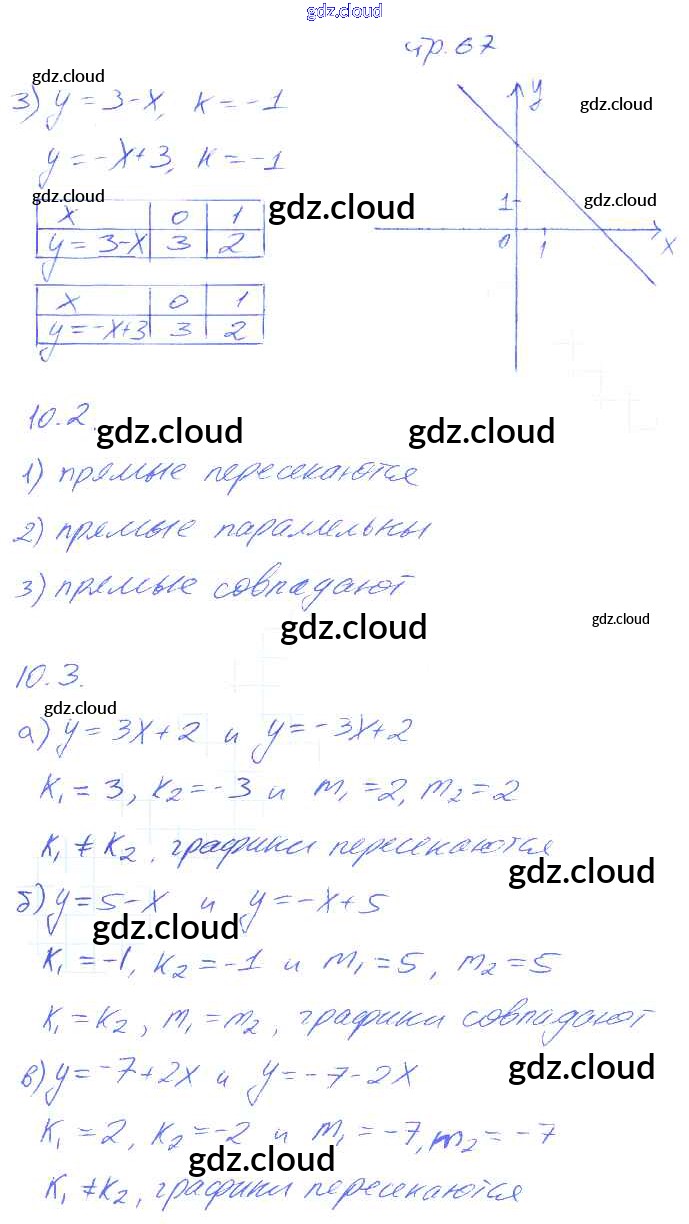 gdz.cloud
стр. 67
gdz.cloud
3) y = 3-x, k = -1
gdz.cloud
y = -x+3, k = -1
gdz.cloud
gdz.cloud
gdz.cloud
x 0 1
y = 3-x 3 2
y
1
0 1 x
x 0 1
y = -x+3 3 2
10.2.
gdz.cloud
gdz.cloud
1) прямые пересекаются
2) прямые параллельны
3) прямые совпадают
gdz.cloud
gdz.cloud
10.3.
gdz.cloud
а) y = 3x+2 и y = -3x+2
K₁ = 3, K₂ = -3 и m₁ = 2, m₂ = 2
K₁ ≠ K₂, графики пересекаются
gdz.cloud
б) y = 5-x и y = -x+5
gdz.cloud
K₁ = -1, K₂ = -1 и m₁ = 5, m₂ = 5
K₁ = K₂, m₁ = m₂, графики совпадают
в) y = -7+2x и y = -7-2x
gdz.cloud
K₁ = 2, K₂ = -2 и m₁ = -7, m₂ = -7
gdz.cloud
K₁ ≠ K₂, графики пересекаются